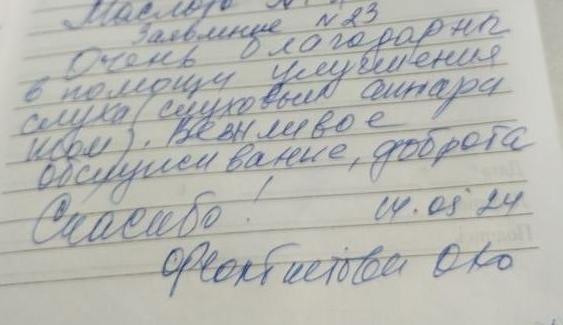 Заявление №23
Очень благодарны
в помощи улучшения
слуха (слуховым аппара
том). Вежливое
обслуживание, доброта
Спасибо! 14.05.24
Феоктистова